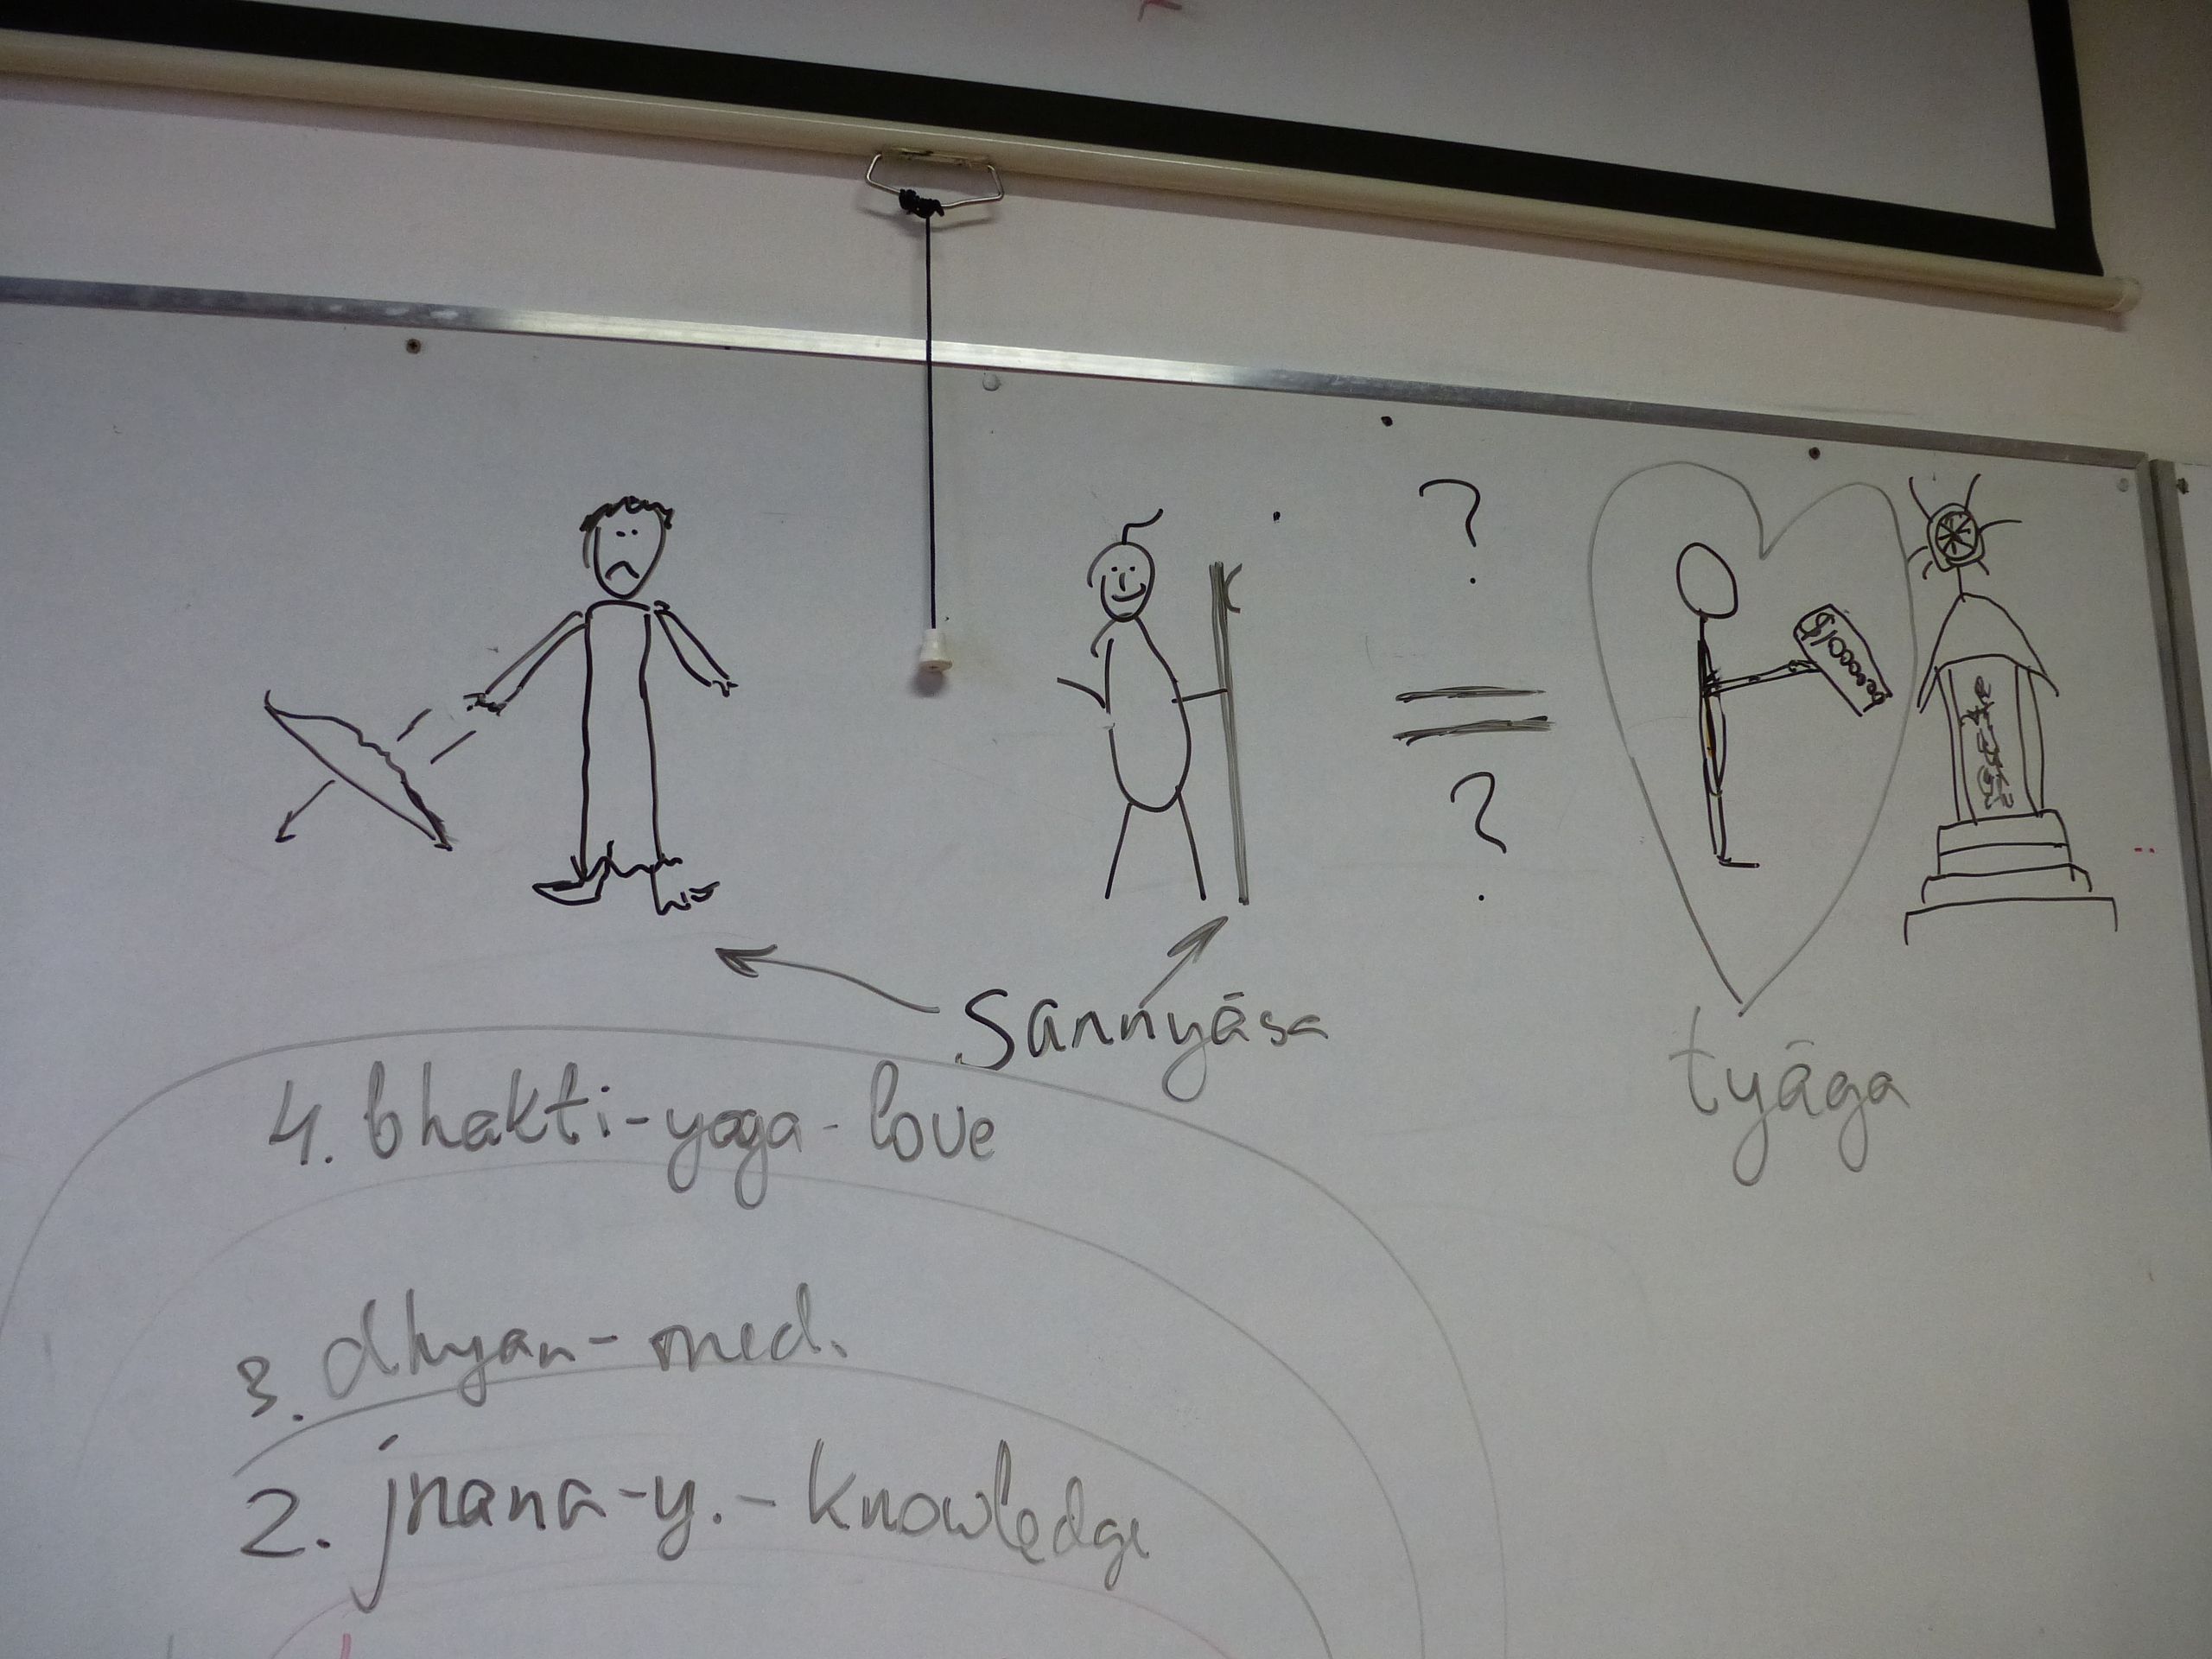 ?
=
?
$10000000
sannyāsa
tyāga
4. bhakti-yoga - love
3. dhyan - med.
2. jnana-y. - knowledge